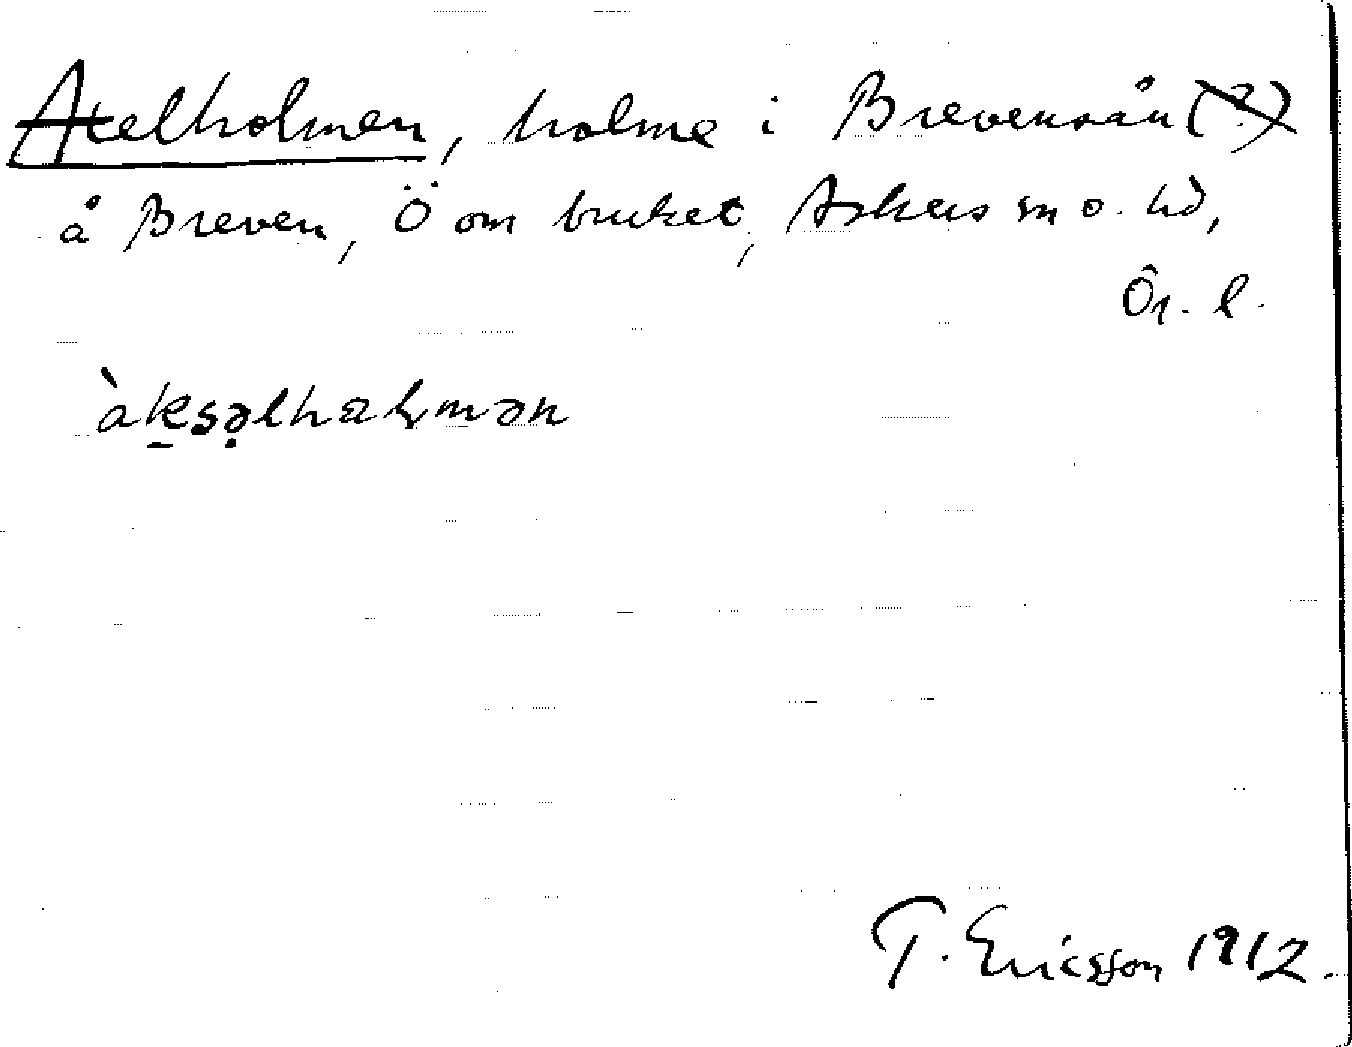 Axelholmen, holme i Brevensån (?)
å Breven, Ö om bruket, Askers sn o. hd,
Ör. l.
àksəlhalmən
T. Ericsson 1912.